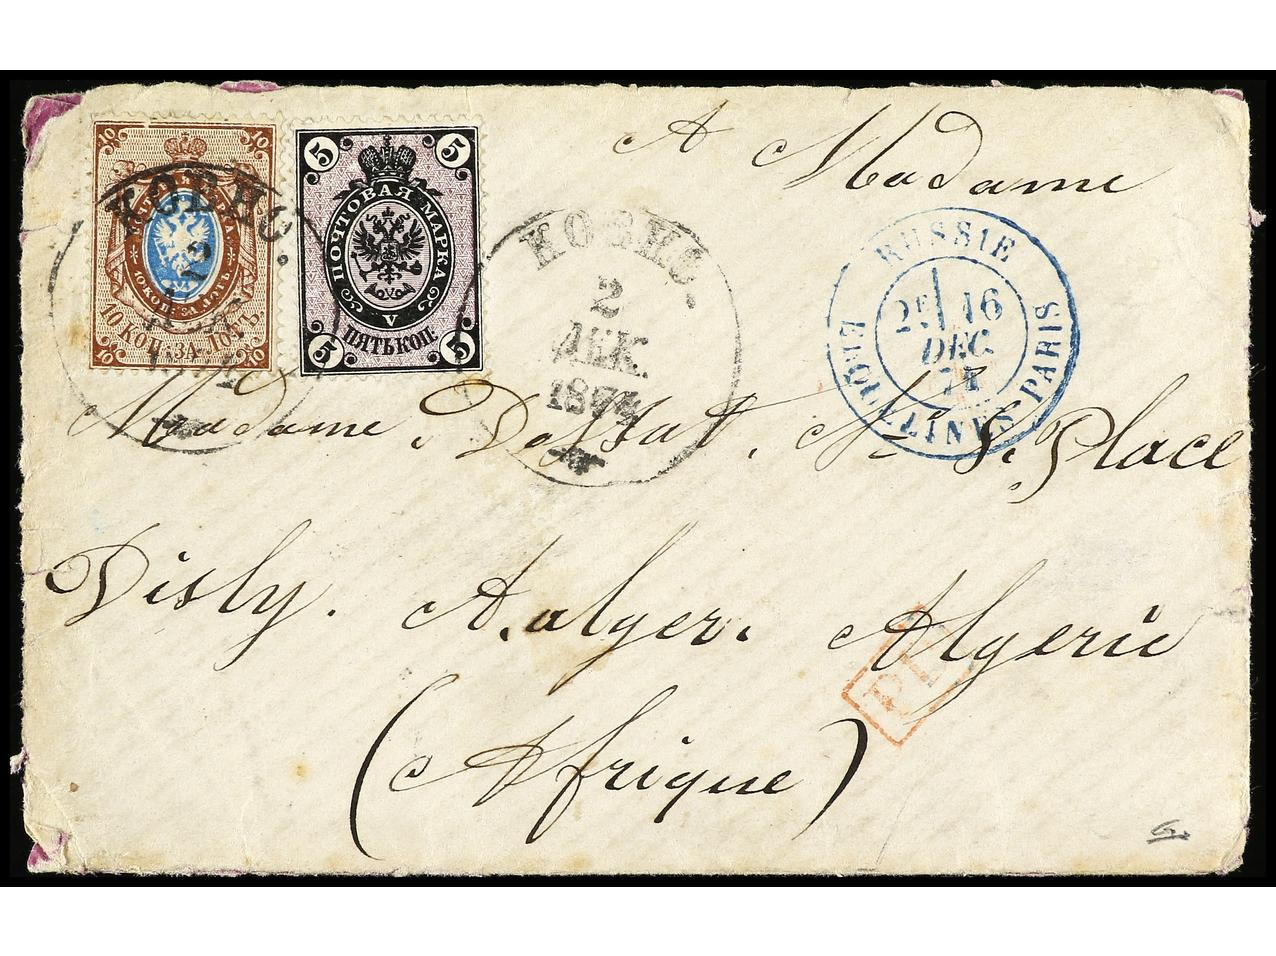 A Madame
10 10
10 КОП. ЗА ЛОТЪ
10 10
5 5
ПОЧТОВАЯ МАРКА
V
ПЯТЬ КОП.
5 5
КОВНО.
КОВНО.
2
ДЕК.
1874
RUSSIE
2E 16
DEC.
74
ERQUELINES PARIS
Madame
Place
Disly. A. alger. Algerie
PD
(Afrique)